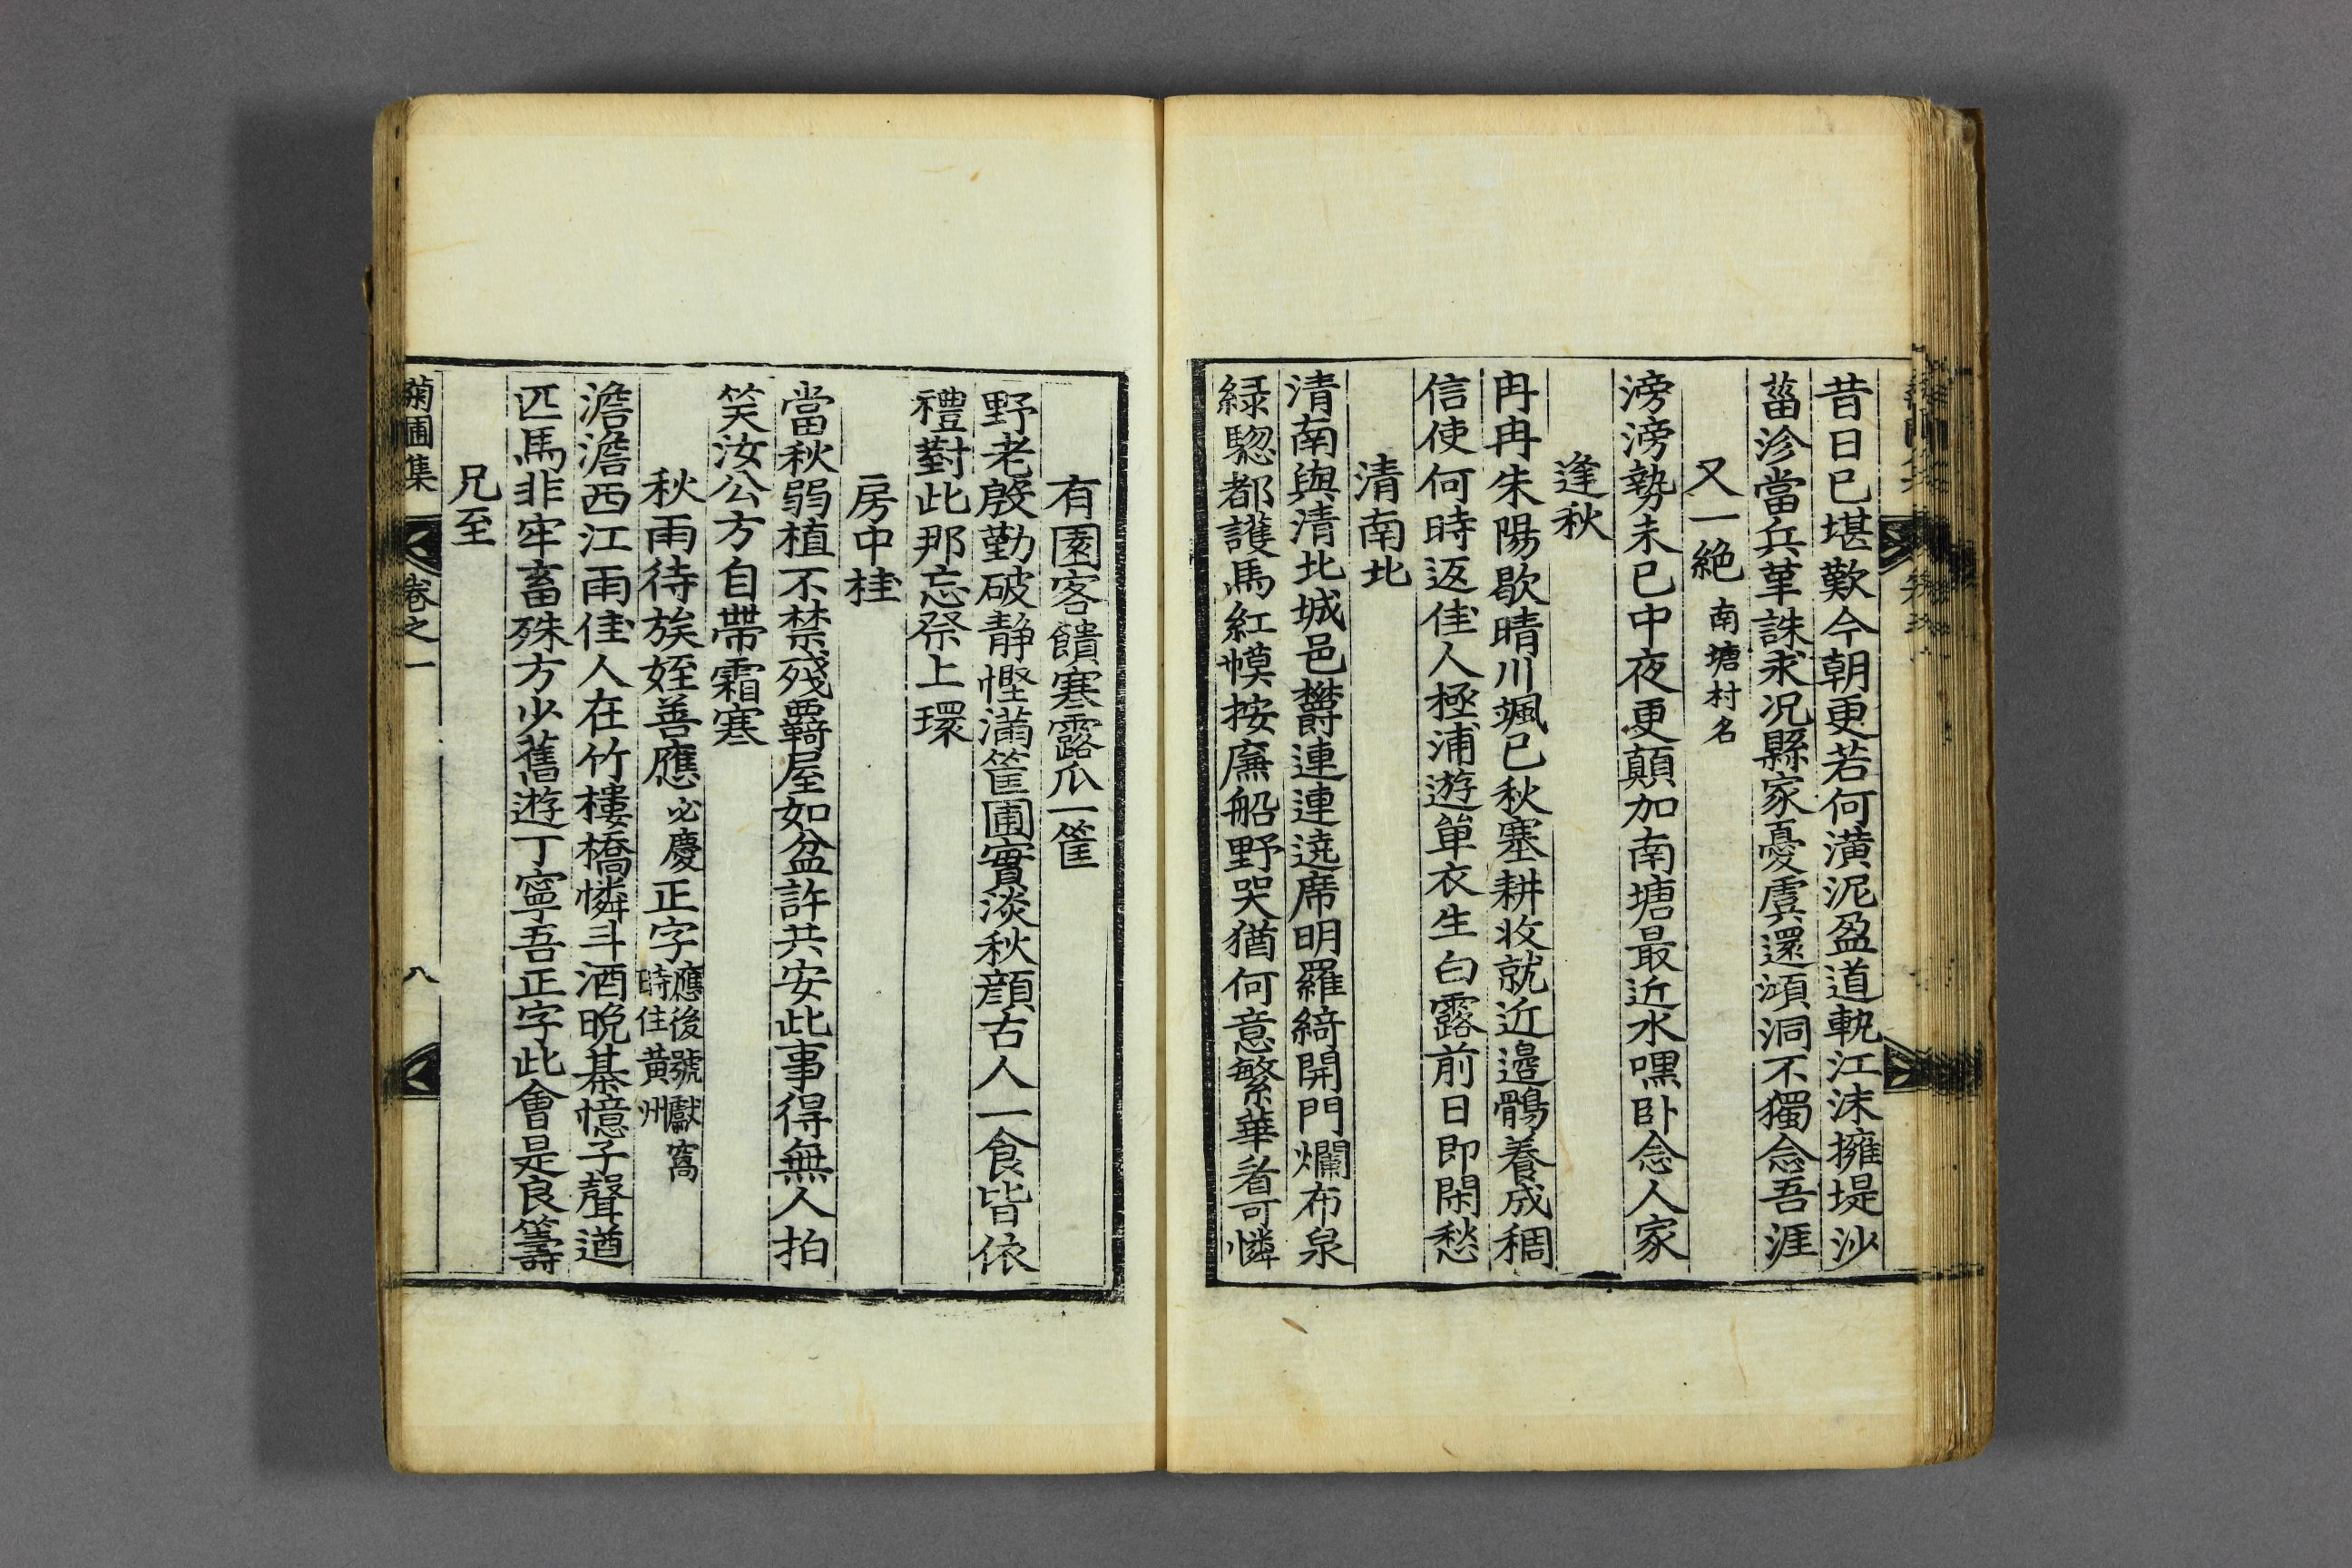 昔日已堪歎今朝更若何潢泥盈道軌江沫擁堤沙
菑沴當兵革誅求况縣家憂虞還澒洞不獨念吾涯
又一絶 南塘村名
滂滂勢未已中夜更顛加南塘最近水嘿卧念人家
逢秋
冉冉朱陽歇晴川颯已秋塞耕收就近邉鶻養成稠
信使何時返佳人極浦遊單衣生白露前日即閑愁
清南北
清南與清北城邑欝連連遶席明羅綺開門爛布泉
緑驄都護馬紅幙按廉船野哭猶何意繁華看可憐
有園客饋寒露瓜一筐
野老慇勤破静慳滿筐圃實淡秋顔古人一食皆依
禮對此那忘祭上環
房中桂
當秋弱植不禁殘覉屋如盆許共安此事得無人拍
笑汝公方自帶霜寒
秋雨待族姪善應 必慶 正字 應後號獻窩時住黃州
澹澹西江雨佳人在竹樓橋憐斗酒晩棊憶子聲遒
匹馬非牢畜殊方少舊遊丁寧吾正字此會是良籌
兄至
菊圃集 卷之一 八